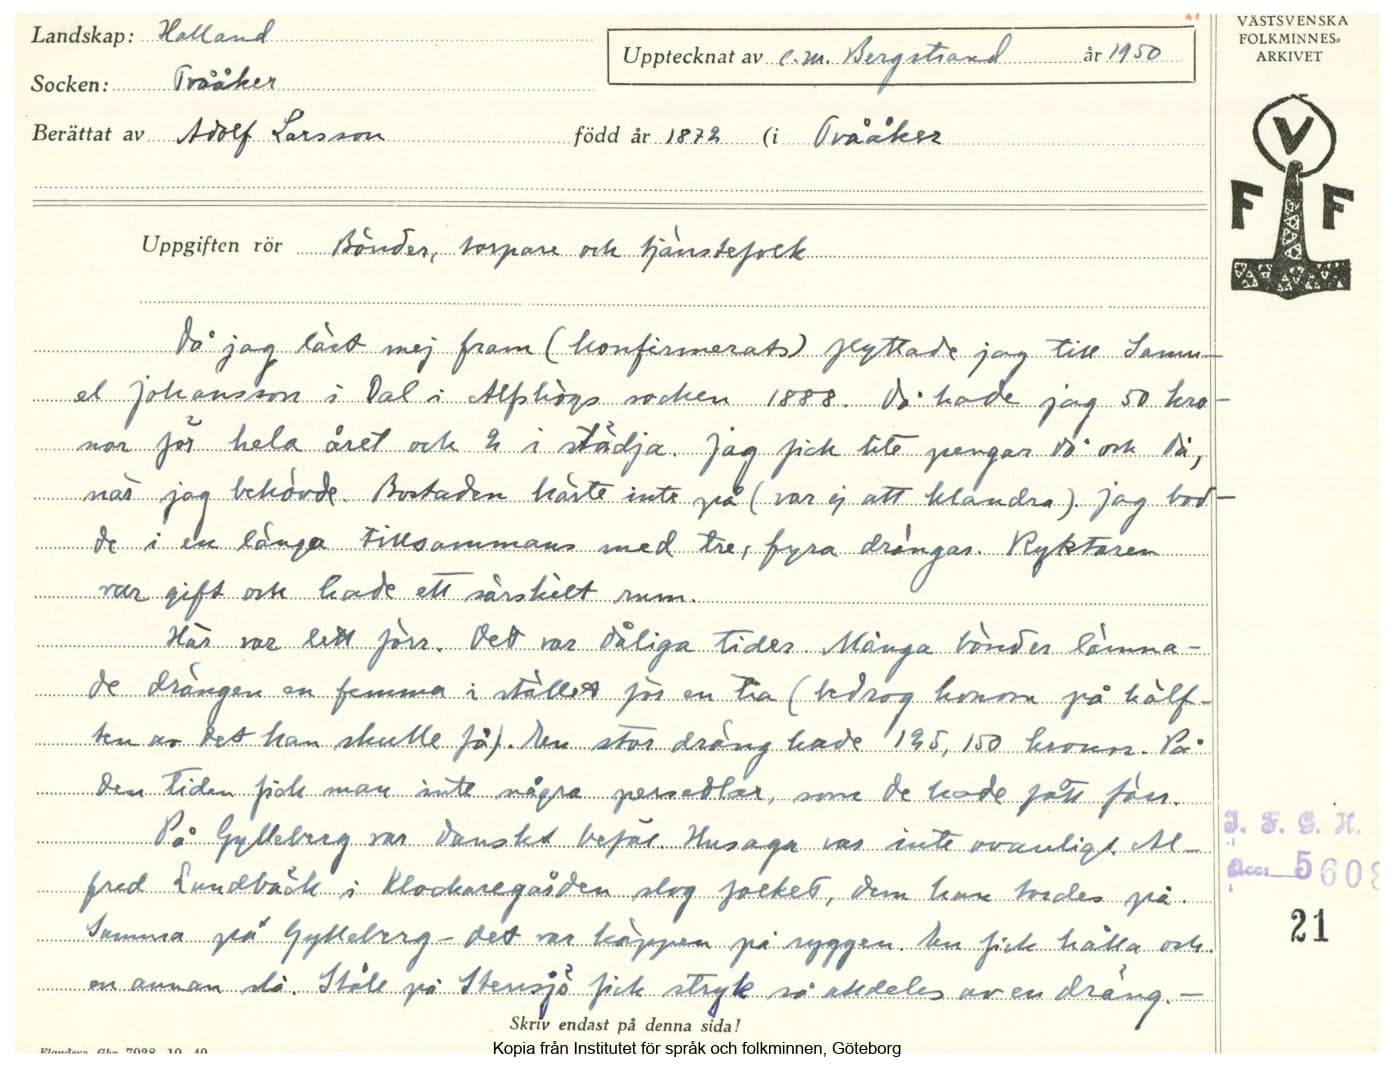 Landskap: Halland
Socken: Tvååker
Upptecknat av C. M. Bergstrand år 1950
Berättat av Adolf Larsson född år 1872 (i Tvååker
VÄSTSVENSKA
FOLKMINNES-
ARKIVET
V
F F
Uppgiften rör Bönder, torpare och tjänstefolk
Då jag läst mej fram (konfirmerats) flyttade jag till Samu-
el Johansson i Dal i Alfshögs socken 1888. Då hade jag 50 kro-
nor för hela året och 2 i städja. Jag fick lite pengar då och då,
när jag behövde. Bostaden härte inte på (var ej att klandra). Jag bod-
de i en länga tillsammans med tre, fyra drängar. Ryktaren
var gift och hade ett särskilt rum.
Här var lett förr. Det var dåliga tider. Många bönder lämna-
de drängen en femma i stället för en tia (bedrog honom på hälf-
ten av det han skulle få). En stor dräng hade 125, 150 kronor. På
den tiden fick man inte några persedlar, som de hade fått förr.
På Gylleberg var danskt befäl. Husaga var inte ovanligt. Al-
fred Lundbäck i Klockaregården slog folket, dem han tordes på.
Samma på Gylleberg - det var käppen på ryggen. En fick hålla och
en annan slå. Ståle på Stensjö fick stryk så alldeles av en dräng. -
J. F. G. H.
Acc: 5608
21
Skriv endast på denna sida!
Kopia från Institutet för språk och folkminnen, Göteborg